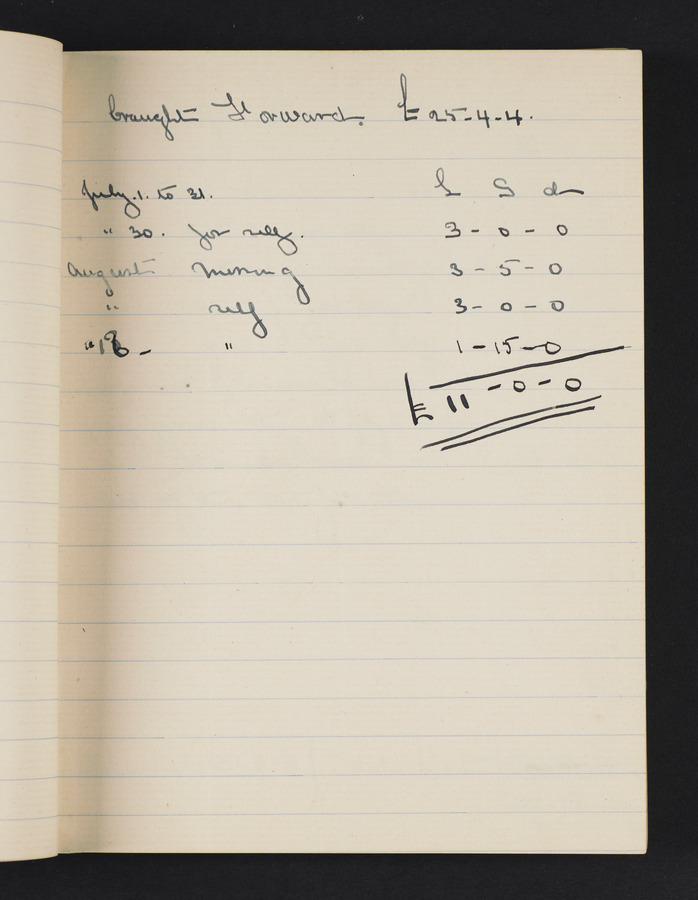 brought Forward. £25-4-4.
July.1. to 31. £ S d
" 30. for self. 3-0-0
August 3-5-0
" self 3-0-0
"18- " 1-15-0
£11-0-0